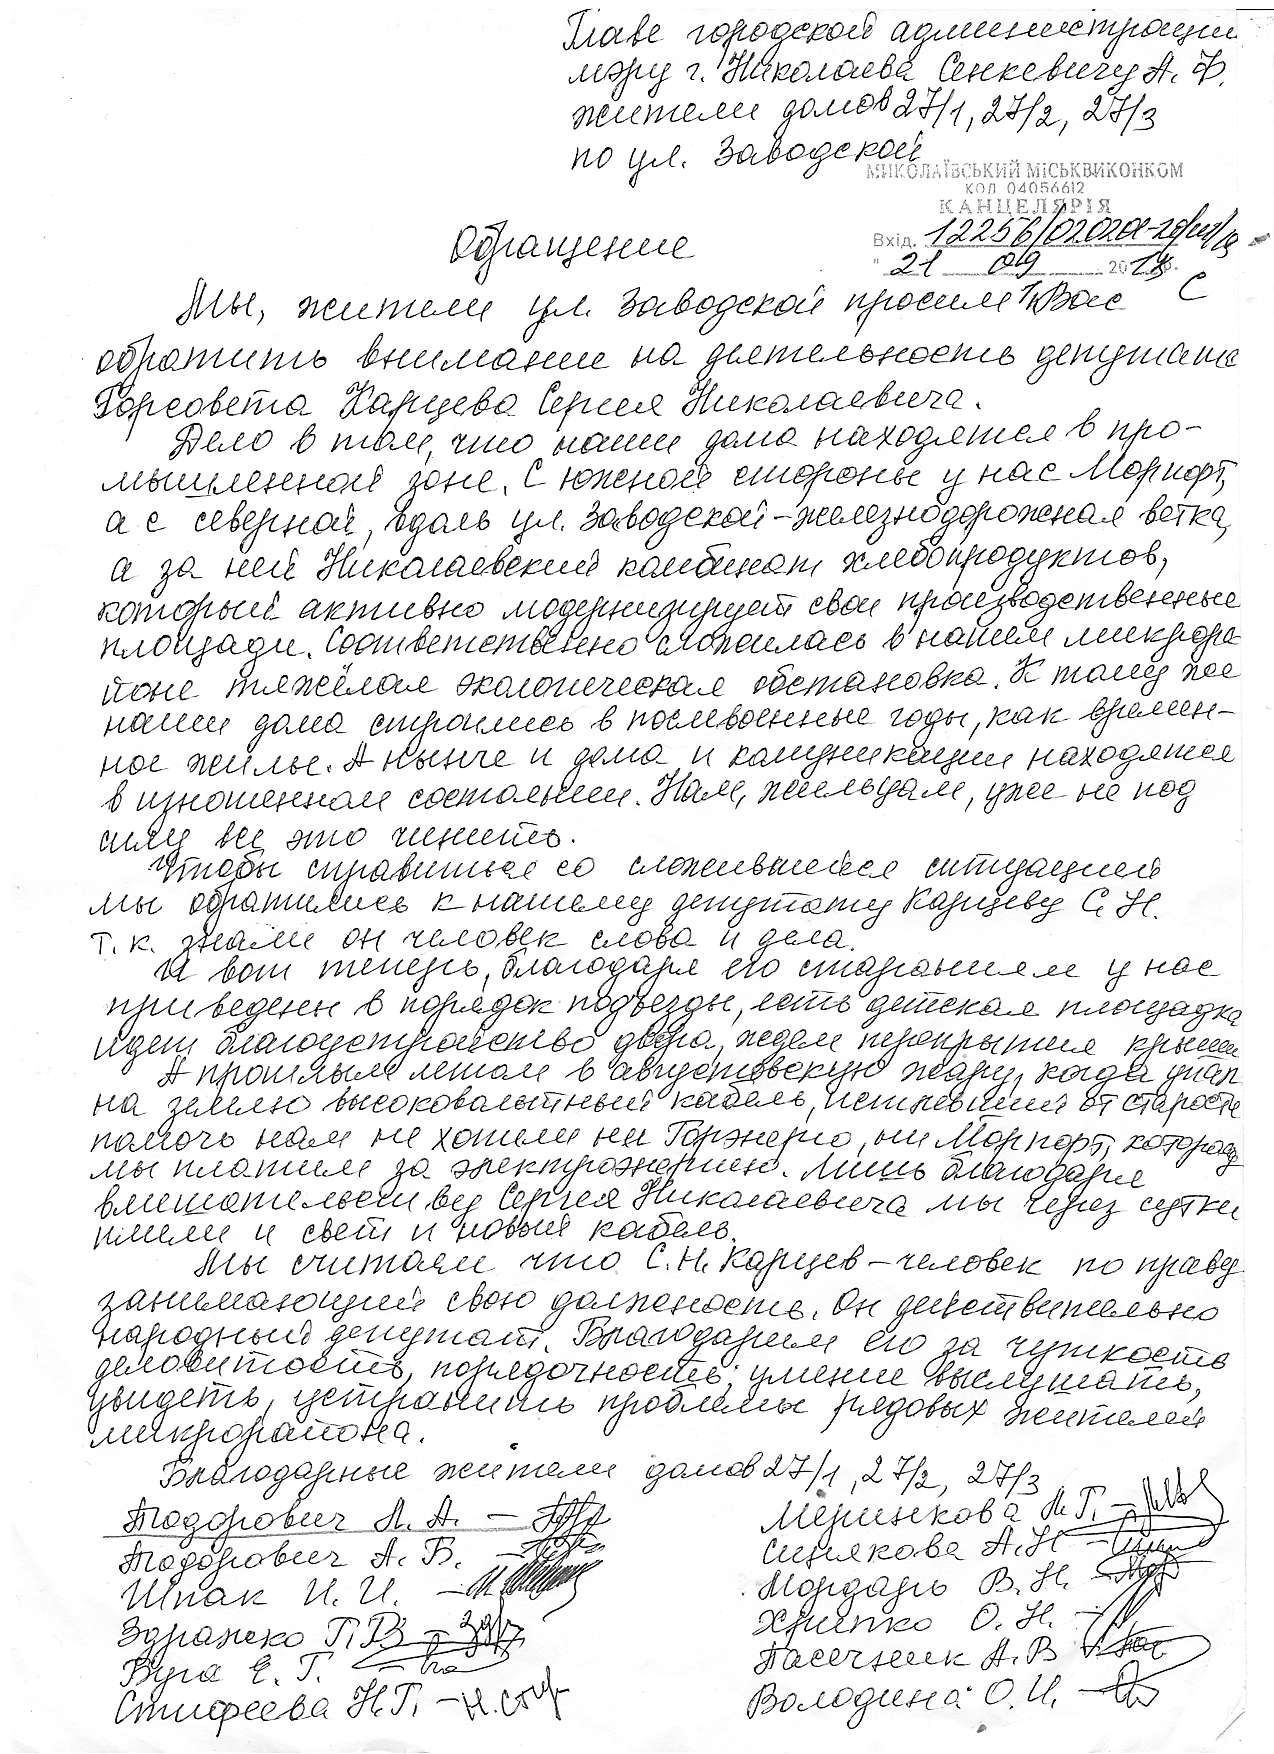 Главе городской администрации
мэру г. Николаева Сенкевичу А. Ф.
жители домов 27/1, 27/2, 27/3
по ул. Заводской
МИКОЛАЇВСЬКИЙ МІСЬКВИКОНКОМ
КОД 04056612
КАНЦЕЛЯРІЯ
Вхід. 12256/020201-
" 21 09 20 р.
Обращение
Мы, жители ул. Заводской просим Вас
обратить внимание на деятельность депутата
Горсовета Карцева Сергея Николаевича.
Дело в том, что наши дома находятся в про-
мышленной зоне. С южной стороны у нас Морпорт,
а с северной, вдоль ул. Заводской - железнодорожная ветка,
а за ней Николаевский комбинат хлебопродуктов,
который активно модернизирует свои производственные
площади. Соответственно сложилась в нашем микрора-
йоне тяжёлая экологическая обстановка. К тому же
наши дома строились в послевоенные годы, как времен-
ное жилье. А нынче и дома и комуникации находятся
в изношенном состоянии. Нам, жильцам, уже не под
силу все это чинить.
Чтобы справиться со сложившейся ситуацией
мы обратились к нашему депутату Карцеву С. Н.
т. к. знали он человек слова и дела.
И вот теперь, благодаря его стараниям у нас
приведены в порядок подъезды, есть детская площадка
идет благоустройство двора, ждем перекрытия крыши
А прошлым летом в августовскую жару, когда упал
на землю высоковольтный кабель, истлевший от старости
помочь нам не хотели ни Горэнерго, ни Морпорт, которому
мы платим за электроэнергию. Лишь благодаря
вмешательству Сергея Николаевича мы через сутки
имели и свет и новый кабель.
Мы считаем что С. Н. Карцев - человек по праву
занимающий свою должность. Он действительно
народный депутат. Благодарим его за чуткость
деловитость, порядочность, умение выслушать,
увидеть, устранить проблемы рядовых жителей
микрорайона.
Благодарные жители домов 27/1, 27/2, 27/3
Тодорович Л. А. -
Тодорович А. В. -
Шпак И. И. -
Здрайко Г. В -
Буга Е. Г. -
Стифеева Н. Г. - Н. Стиф
Меринкова Л. Г. -
Синякова А. Н -
Мордарь В. Н. -
Хрипко О. Н. -
Пасечник А. В
Володина О. И. -